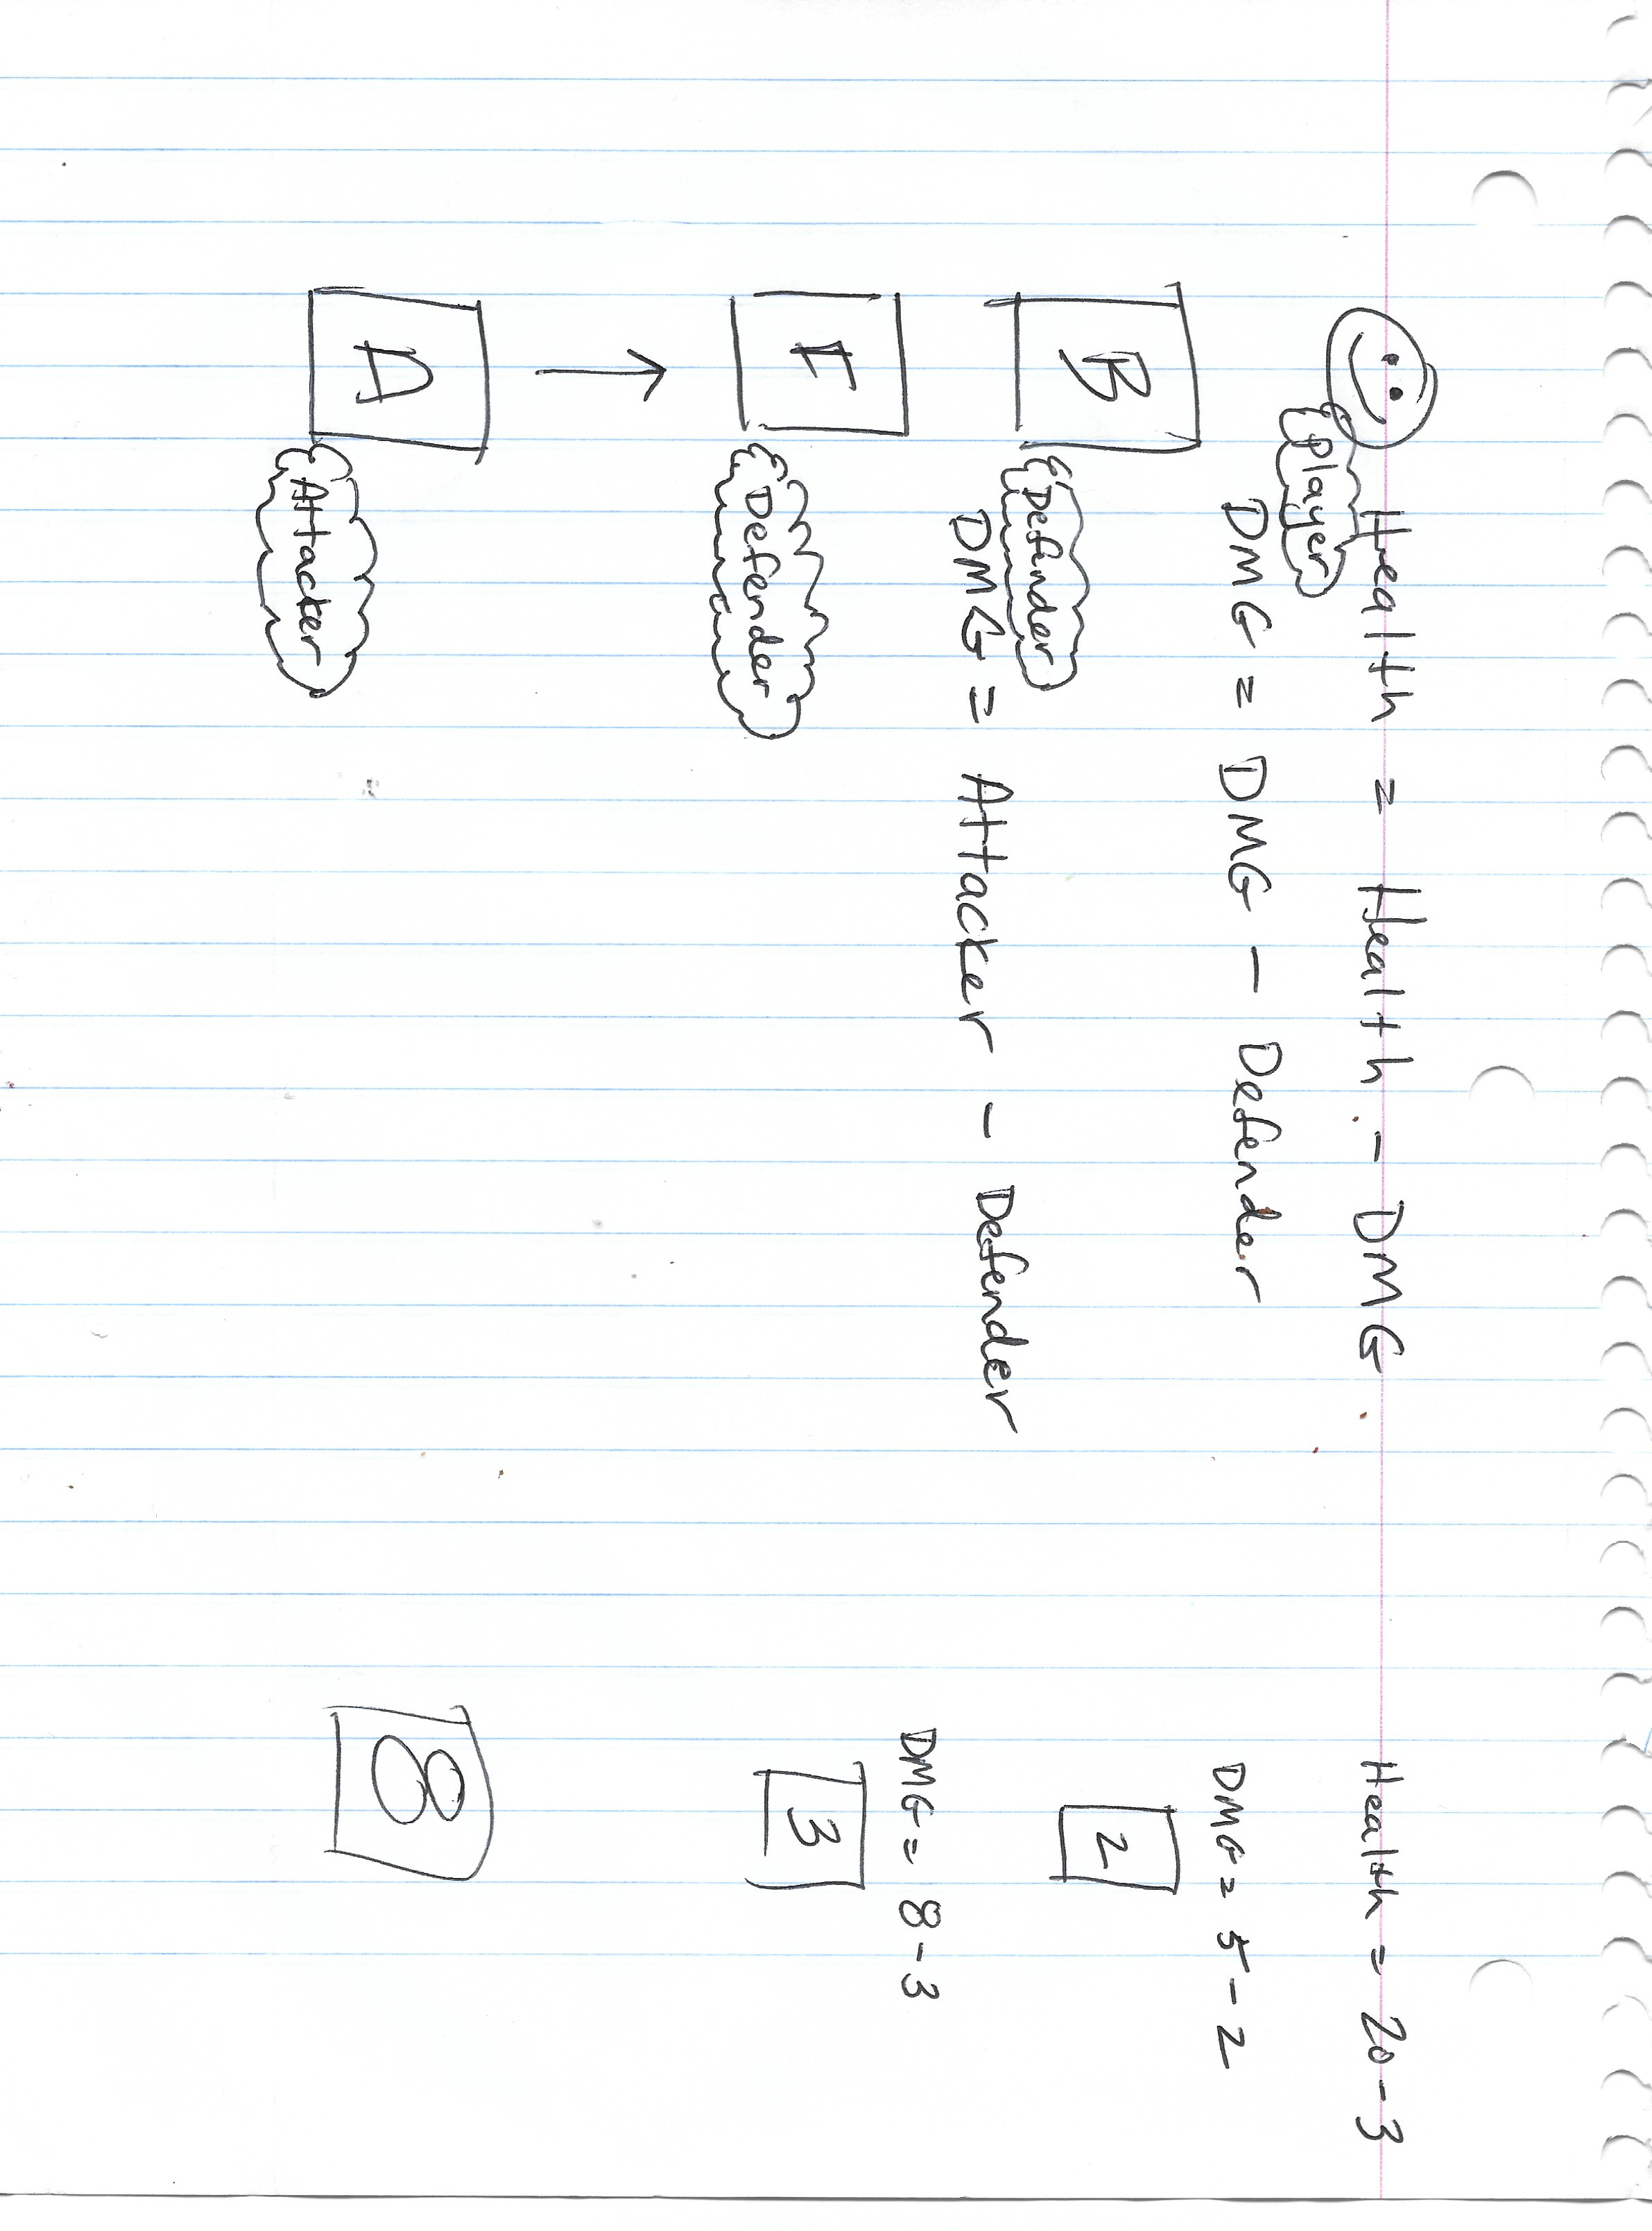 Health = Health - DMG
Health = 20-3
Player
DMG = DMG - Defender
DMG = 5-2
B
2
Defender
DMG = Attacker - Defender
DMG = 8-3
F
3
Defender
A
8
Attacker